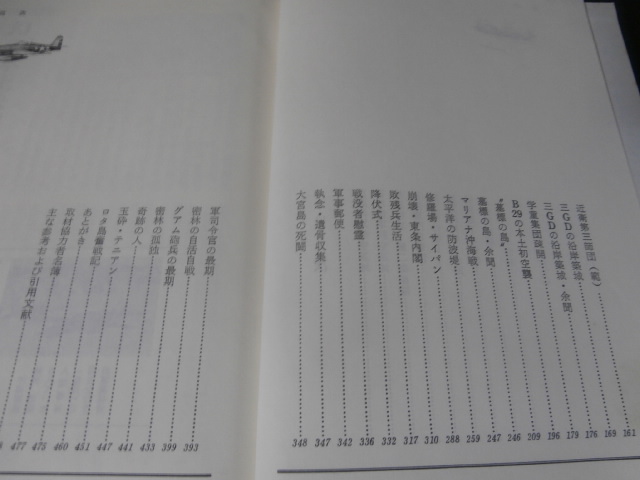 近衛第三師団(範)……161
三GDの沿岸築城……169
三GDの沿岸築城・余聞……176
学童集団疎開……179
B29の本土初空襲……196
"墓標の島"……209
墓標の島・余聞……246
マリアナ沖海戦……247
太平洋の防波堤……259
修羅場・サイパン……288
崩壊・東条内閣……310
敗残兵生活……317
降伏式……332
戦没者慰霊……336
軍事郵便……342
執念・遺骨収集……347
大宮島の死闘……348
軍司令官の最期……393
密林の自活自戦……399
グアム砲兵の最期……433
密林の孤独……441
奇跡の人……447
玉砕・テニアン……451
ロタ島戦記……460
あとがき……475
取材協力者名簿……477
主な参考および引用文献